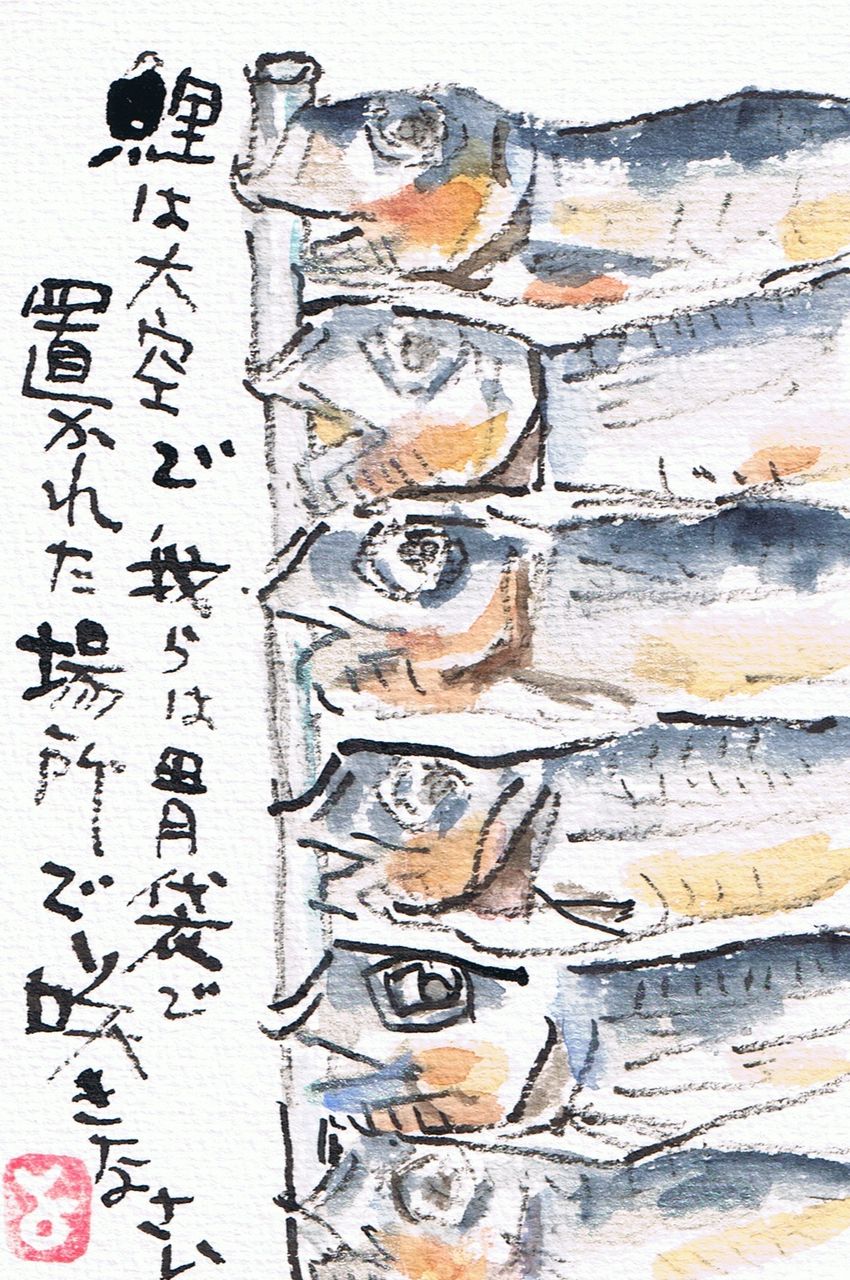 鯉は大空で 我らは胃袋で
置かれた場所で咲きなさい